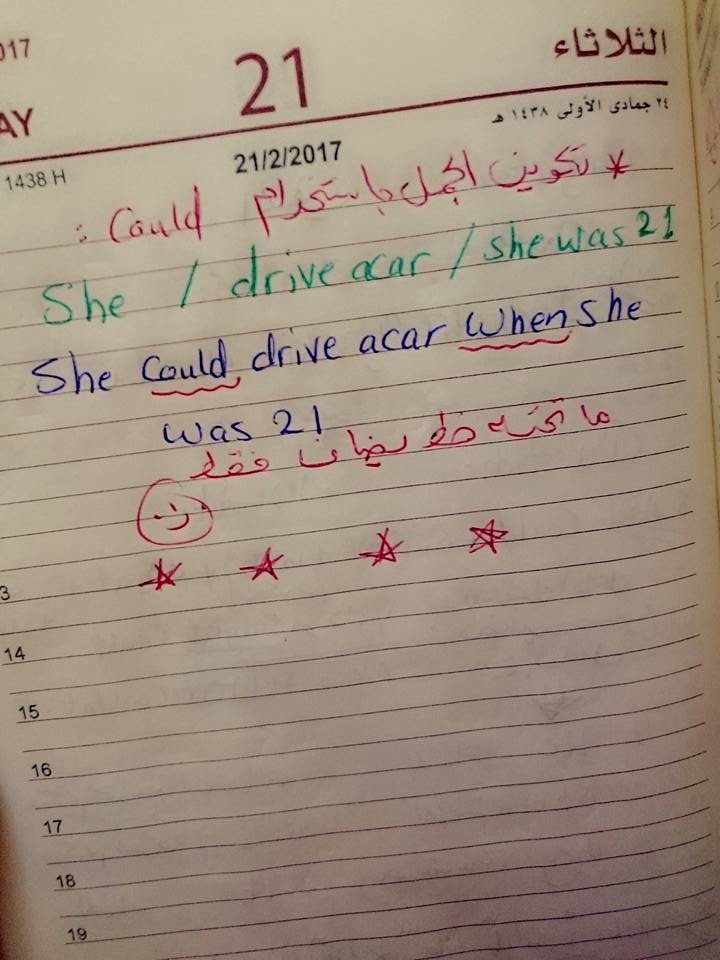 017
21
الثلاثاء
AY
٢٤ جمادى الأولى ١٤٣٨ هـ
1438 H
21/2/2017
* تكوين الجمل باستخدام Could :
She / drive acar / she was 21
She Could drive acar When she
was 21
ما تحته خط يضاف فقط
3
14
15
16
17
18
19